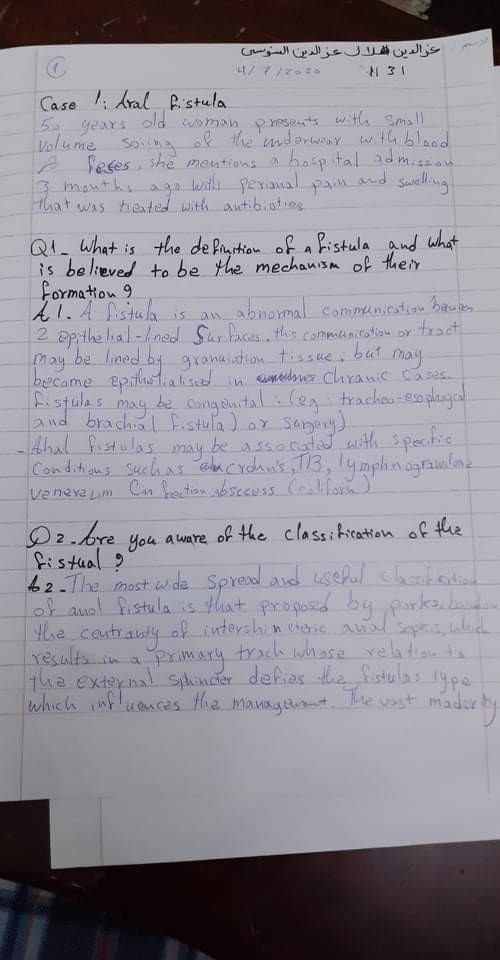 عزالدين هلال عزالدين السنوسي
1
4/7/2020
N 31
Case 1: Anal fistula
50 years old woman presents with small
volume soiing of the underwear with blood
feces, she mentions a hospital admission
3 months ago with perianal pain and swelling
that was treated with antibiotics
Q1 - What is the definition of a fistula and what
is believed to be the mechanism of their
formation?
A1. A fistula is an abnormal communication between
2 epithelial-lined surfaces, this communication or tract
may be lined by granulation tissue, but may
become epithelialised in chranic cases.
fistulas may be congenital: (eg: tracheo-esophagal
and brachial fistula) or surgery)
- Anal fistulas may be associated with specific
conditions such as crohn's, TB, lymphnogranuloma
venereum Cinfection abscess (coliform)
Q2 - Are you aware of the classification of the
fistual?
A2 - The most wide spread and useful classification
of anal fistula is that proposed by parks, based on
the centrality of intershincteric anal sepsis, which
results in a primary trach whose relation to
the external sphincter defies the fistulas type
which influences the management. The vast madority